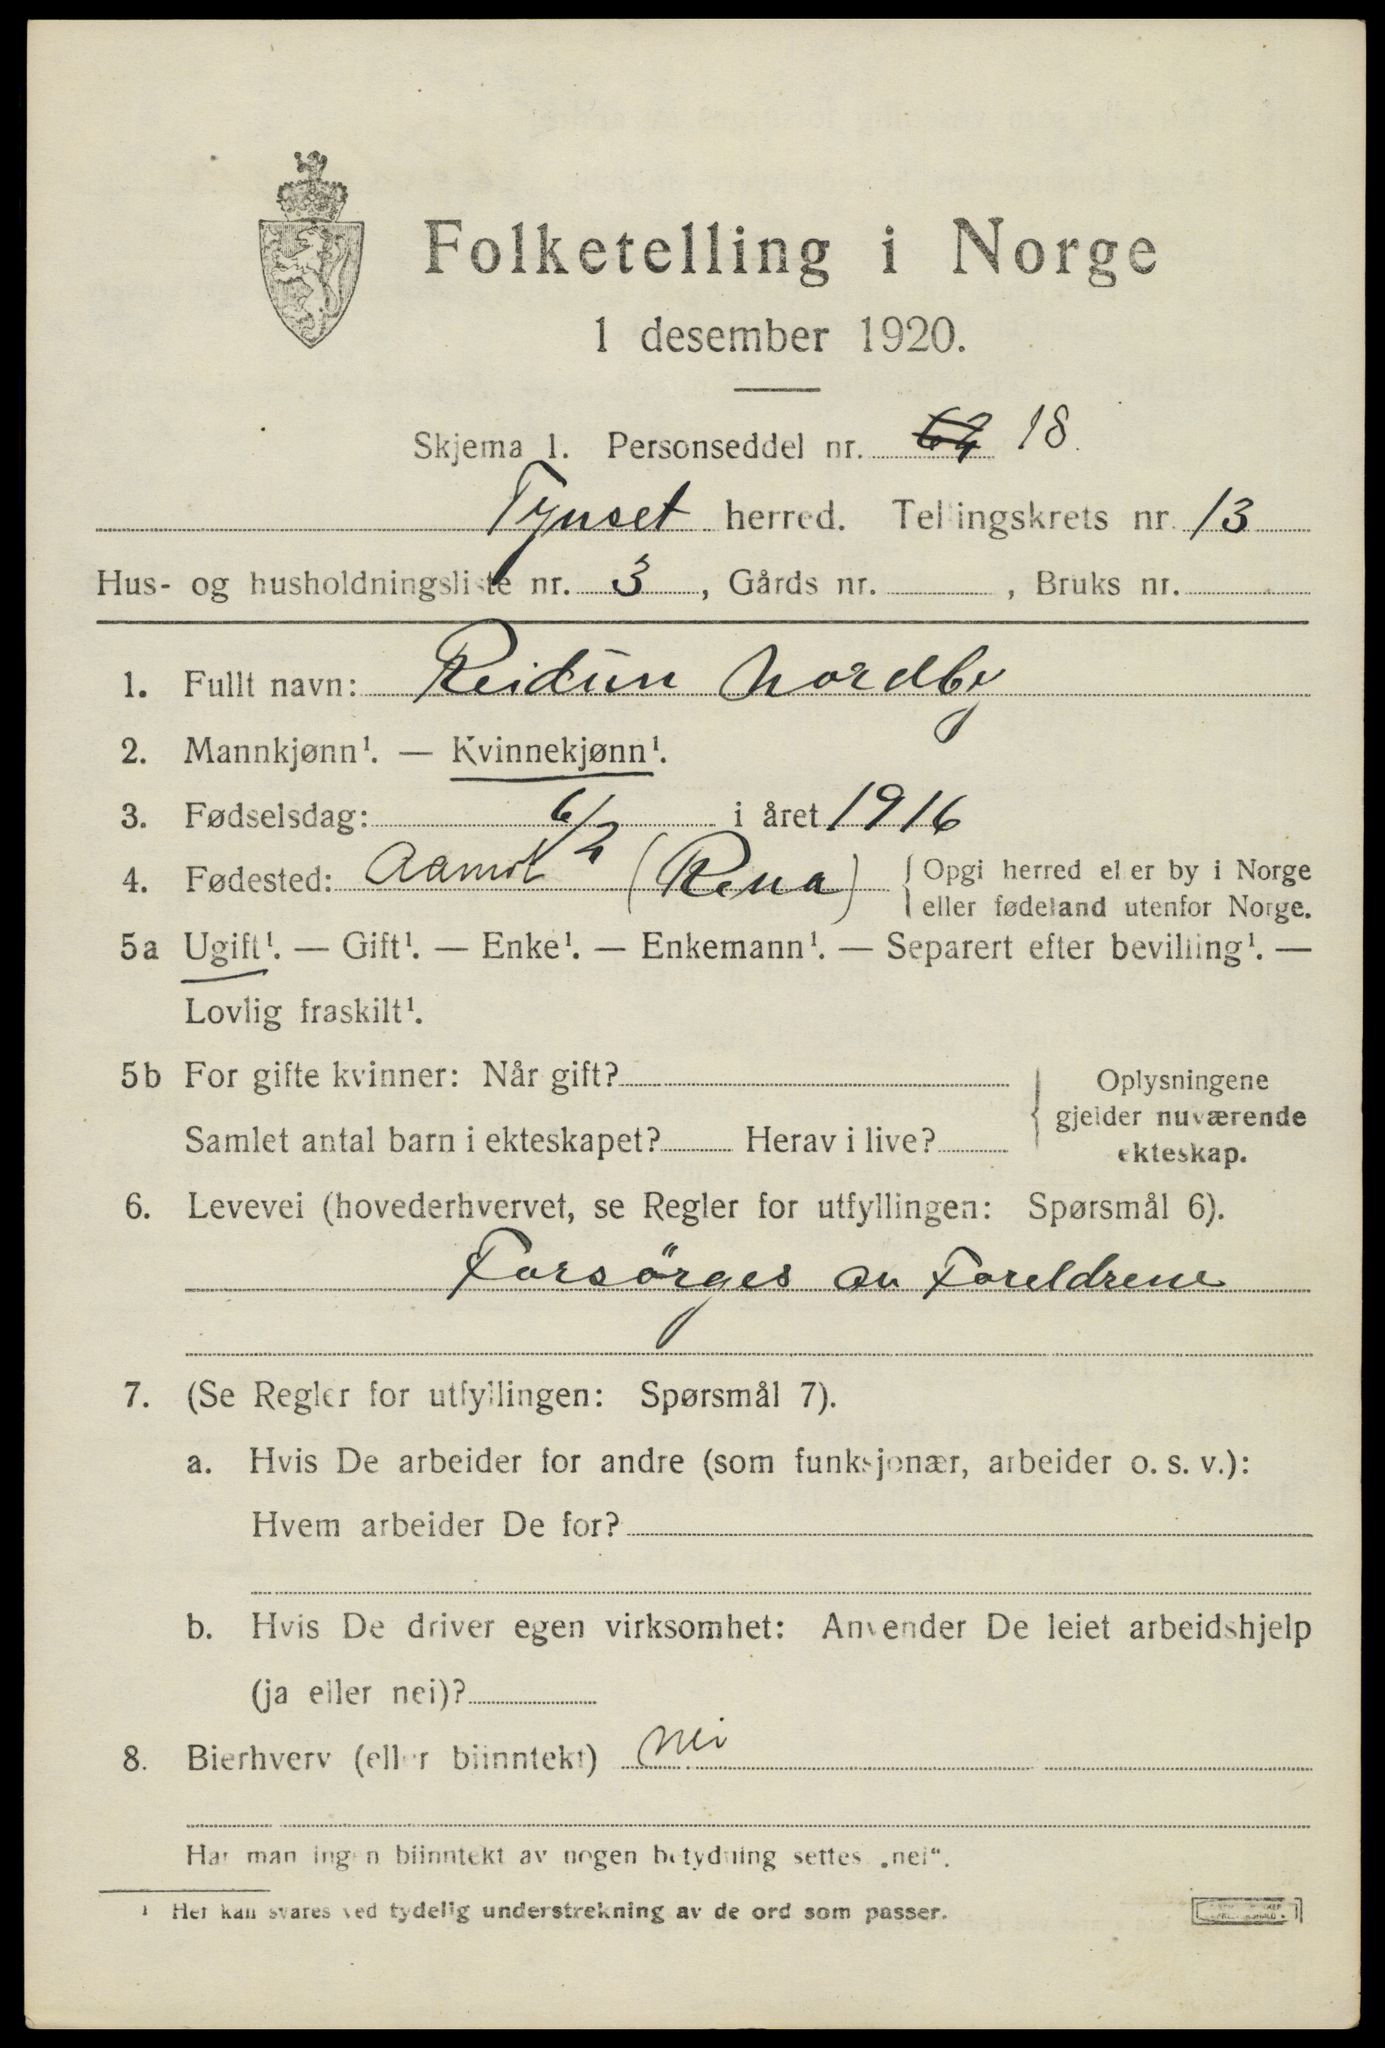 Folketelling i Norge
1 desember 1920.
Skjema 1. Personseddel nr. 62 18.
Tynset herred. Tellingskrets nr. 13
Hus- og husholdningsliste nr. 3, Gårds nr. , Bruks nr.
1. Fullt navn: Reidun Nordby
2. Mannkjønn¹. — Kvinnekjønn¹.
3. Fødselsdag: 6/2 i året 1916
4. Fødested: Aamot (Rena) Opgi herred eller by i Norge
eller fødeland utenfor Norge.
5a Ugift¹. — Gift¹. — Enke¹. — Enkemann¹. — Separert efter bevilling¹. —
Lovlig fraskilt¹.
5b For gifte kvinner: Når gift?
Samlet antal barn i ekteskapet? Herav i live?
Oplysningene
gjelder nuværende
ekteskap.
6. Levevei (hovederhvervet, se Regler for utfyllingen: Spørsmål 6).
Forsörges av Foreldrene
7. (Se Regler for utfyllingen: Spørsmål 7).
a. Hvis De arbeider for andre (som funksjonær, arbeider o. s. v.):
Hvem arbeider De for?
b. Hvis De driver egen virksomhet: Anvender De leiet arbeidshjelp
(ja eller nei)?
8. Bierhverv (eller biinntekt) Nei
Har man ingen biinntekt av nogen betydning settes „nei“.
¹ Her kan svares ved tydelig understrekning av de ord som passer.